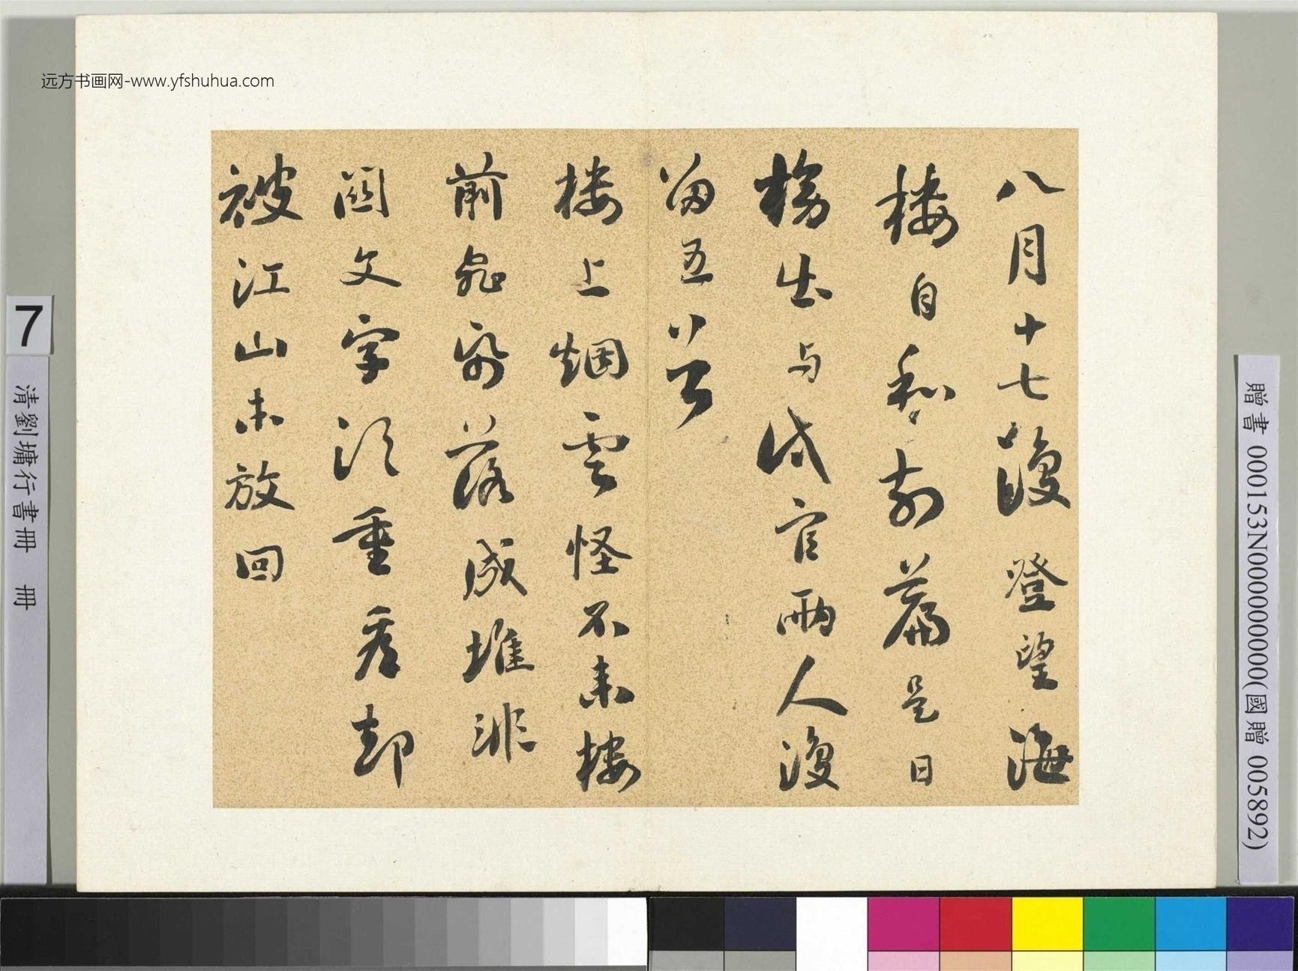 远方书画网-www.yfshuhua.com
八月十七復登望海
樓自和前篇是日
榜出与試官兩人復
留五首
樓上烟雲怪不來樓
前飛紙落成堆非
關文字須重看却
被江山未放回
7
清劉墉行書冊 冊
贈書 000153N000000000(國贈 005892)